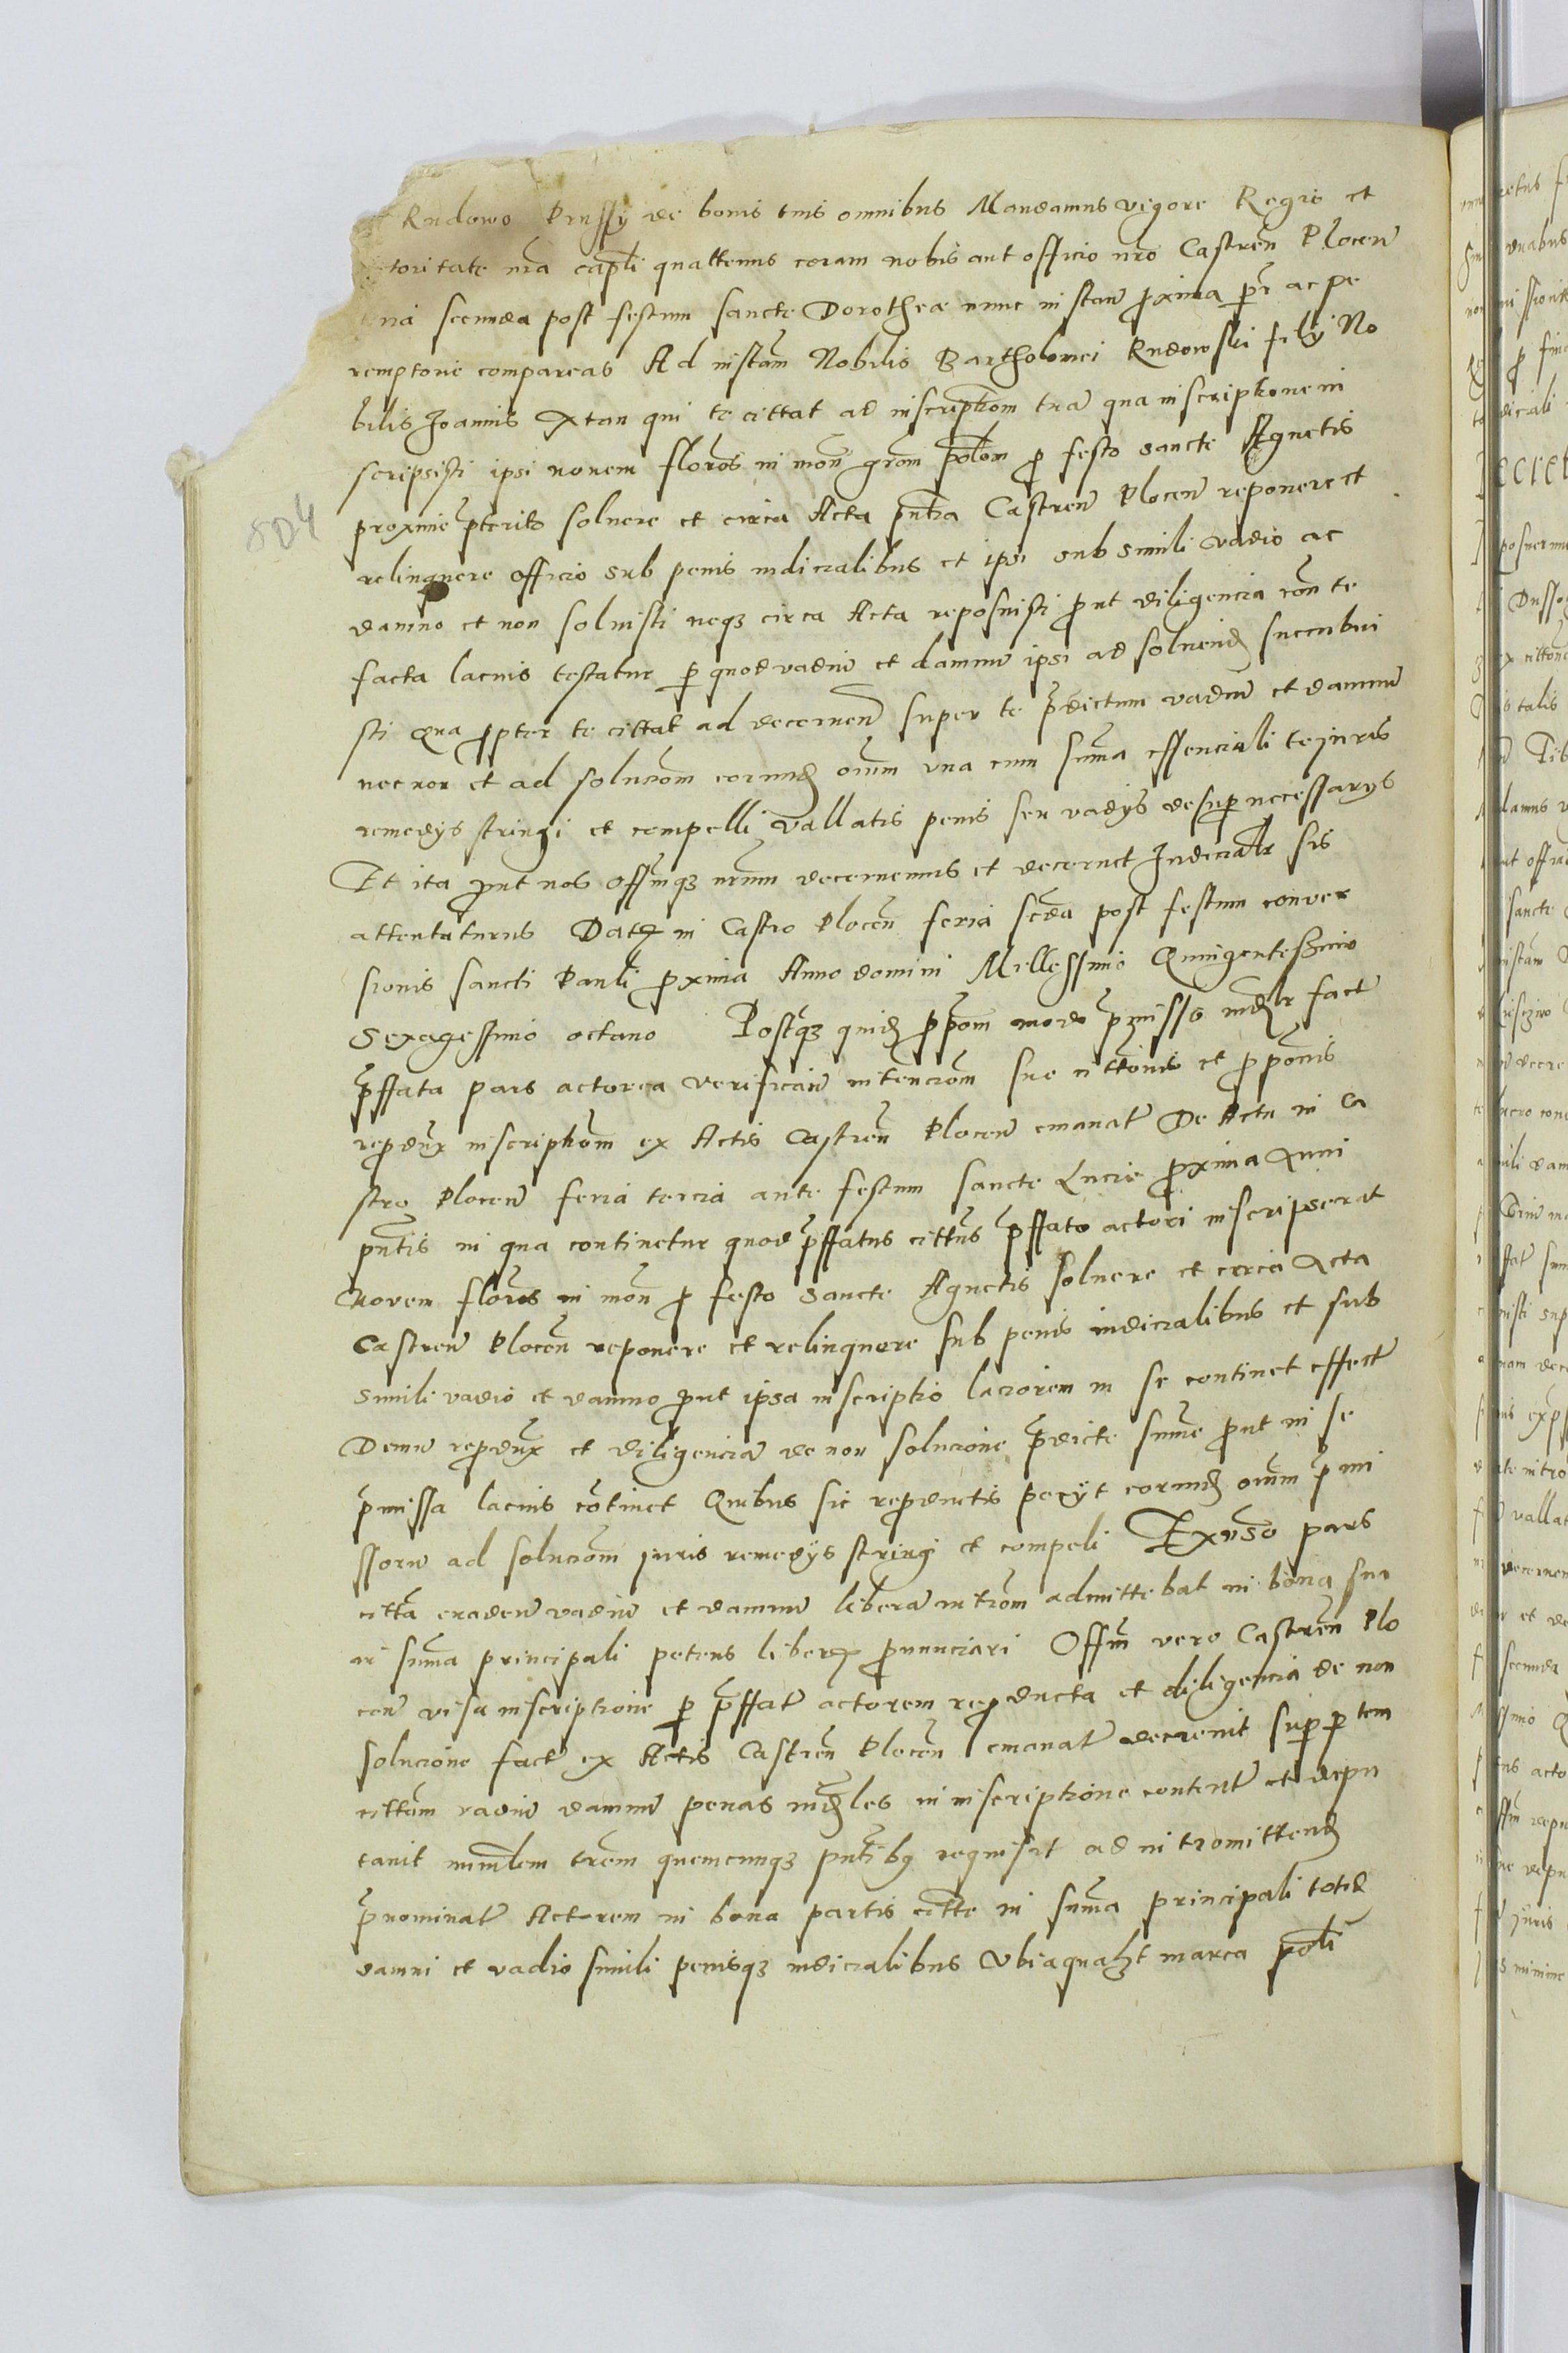 Rudowo Prussy de bonis tuis omnibus Mandamus vigore Regio et
toritate nra capli quattenus coram nobis aut officio nro Castren Plocen
ria secunda post festum sancte Dorotheæ nunc instan proxima per ac pe
remptorie compareas Ad instam Nobilis Bartholomei Rudowski filij No
bilis Joannis Xtan qui te cittat ad inscriptiom tua qua inscriptione in
scripsisti ipsi novem floros in mon grom polom pro festo sancte Agnetis
proxime pterito solvere et circa Acta pntia Castren Plocen reponere et
relinquere officio sub penis iudicialibus et ipsi sub simili vadio ac
damno et non solvisti neqz circa Acta reposuisti prout diligencia con te
facta lacius testatur per quod vadiu et damnu ipsi ad solvend succubui
sti Qua propter te cittat ad decernen super te pdictum vadiu et damnum
nec non et ad soluciom eorund oium una cum suma essenciali te juris
remedijs stringi et compelli vallatis penis seu vadijs desuper necessarijs
Et ita prout nos offmqz nrum decernemus et decernet Judicialr sis
attentaturus Dat in Castro Plocen feria scda post festum conver
sionis sancti Pauli proxima Anno domini Millessimo Quingentesimo
Sexagessimo octavo Postqz quid ppom modo pmisso iudlr fact
pffata pars actorea verifican intenciom sue cittonis et propomis
reprodux inscriptiom ex Actis Castren Plocen emanat De Actu in Ca
stro Plocen feria tercia ante festum sancte Lucie proxima Anni
pntis in qua continetur quod pffatus cittus pffato actori inscripserat
Novem floros in mon pro festo sancte Agnetis solvere et circa Acta
Castren Plocen reponere et relinquere sub penis iudicialibus et sub
simili vadio et damno prout ipsa inscriptio laciorem in se continet effect
Demu reprodux et diligencia de non solucione pdicte sume prout in se
pmissa lacius continet Quibus sic reproductis petijt eorund oium pmi
ssoru ad soluciom juris remedijs stringi et compeli Exvso pars
citta evaden vadiu et damnu libera introm admittebat in bona sua
in suma principali petens liber pronunciari Offm vero Castren Plo
cen visa inscriptione per pffat actorem reproducta et diligencia de non
solucione fact ex Actis Castren Plocen emanat decrevit super ptem
cittam vadiu damnu penas iudles in inscriptione content et depu
tavit mimlem trem quemcunqz pntibq requisit ad intromittend
pnominat Actorem in bona partis citte in suma principali totid
damni et vadio simili penisqz iudicialibus Vbi aquazt marca poli
504